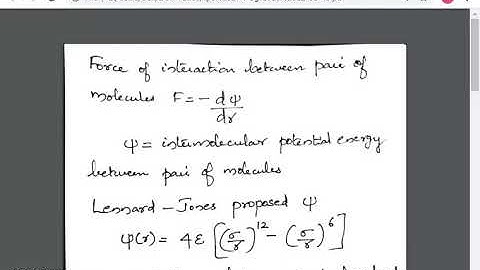 Force of interaction between pair of
molecules F = - dψ/dr
ψ = intermolecular potential energy
between pair of molecules
Lennard - Jones proposed ψ
ψ(r) = 4ε [(σ/r)^12 - (σ/r)^6]